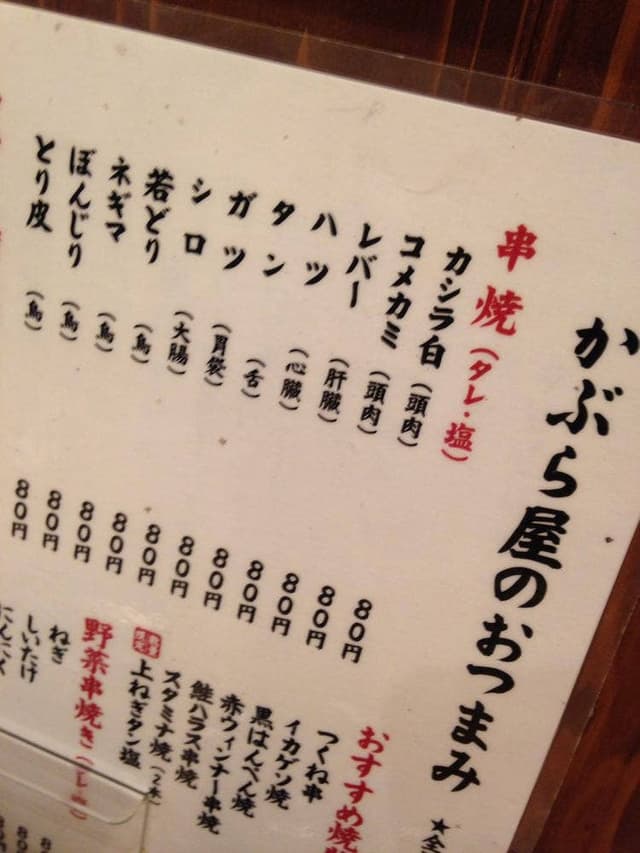 かぶら屋のおつまみ
★全
串焼(タレ・塩)
カシラ白(頭肉) 80円
コメカミ(頭肉) 80円
レバー(肝臓) 80円
ハツ(心臓) 80円
タン(舌) 80円
ガツ(胃袋) 80円
シロ(大腸) 80円
若どり(鳥) 80円
ネギマ(鳥) 80円
ぼんじり(鳥) 80円
とり皮(鳥) 80円
おすすめ焼
つくね串
イカゲソ焼
黒はんぺん焼
赤ウィンナー串焼
鮭ハラス串焼
スタミナ焼(2本)
上ねぎタン塩
野菜串焼き(タレ・塩)
ねぎ
しいたけ
にんにく